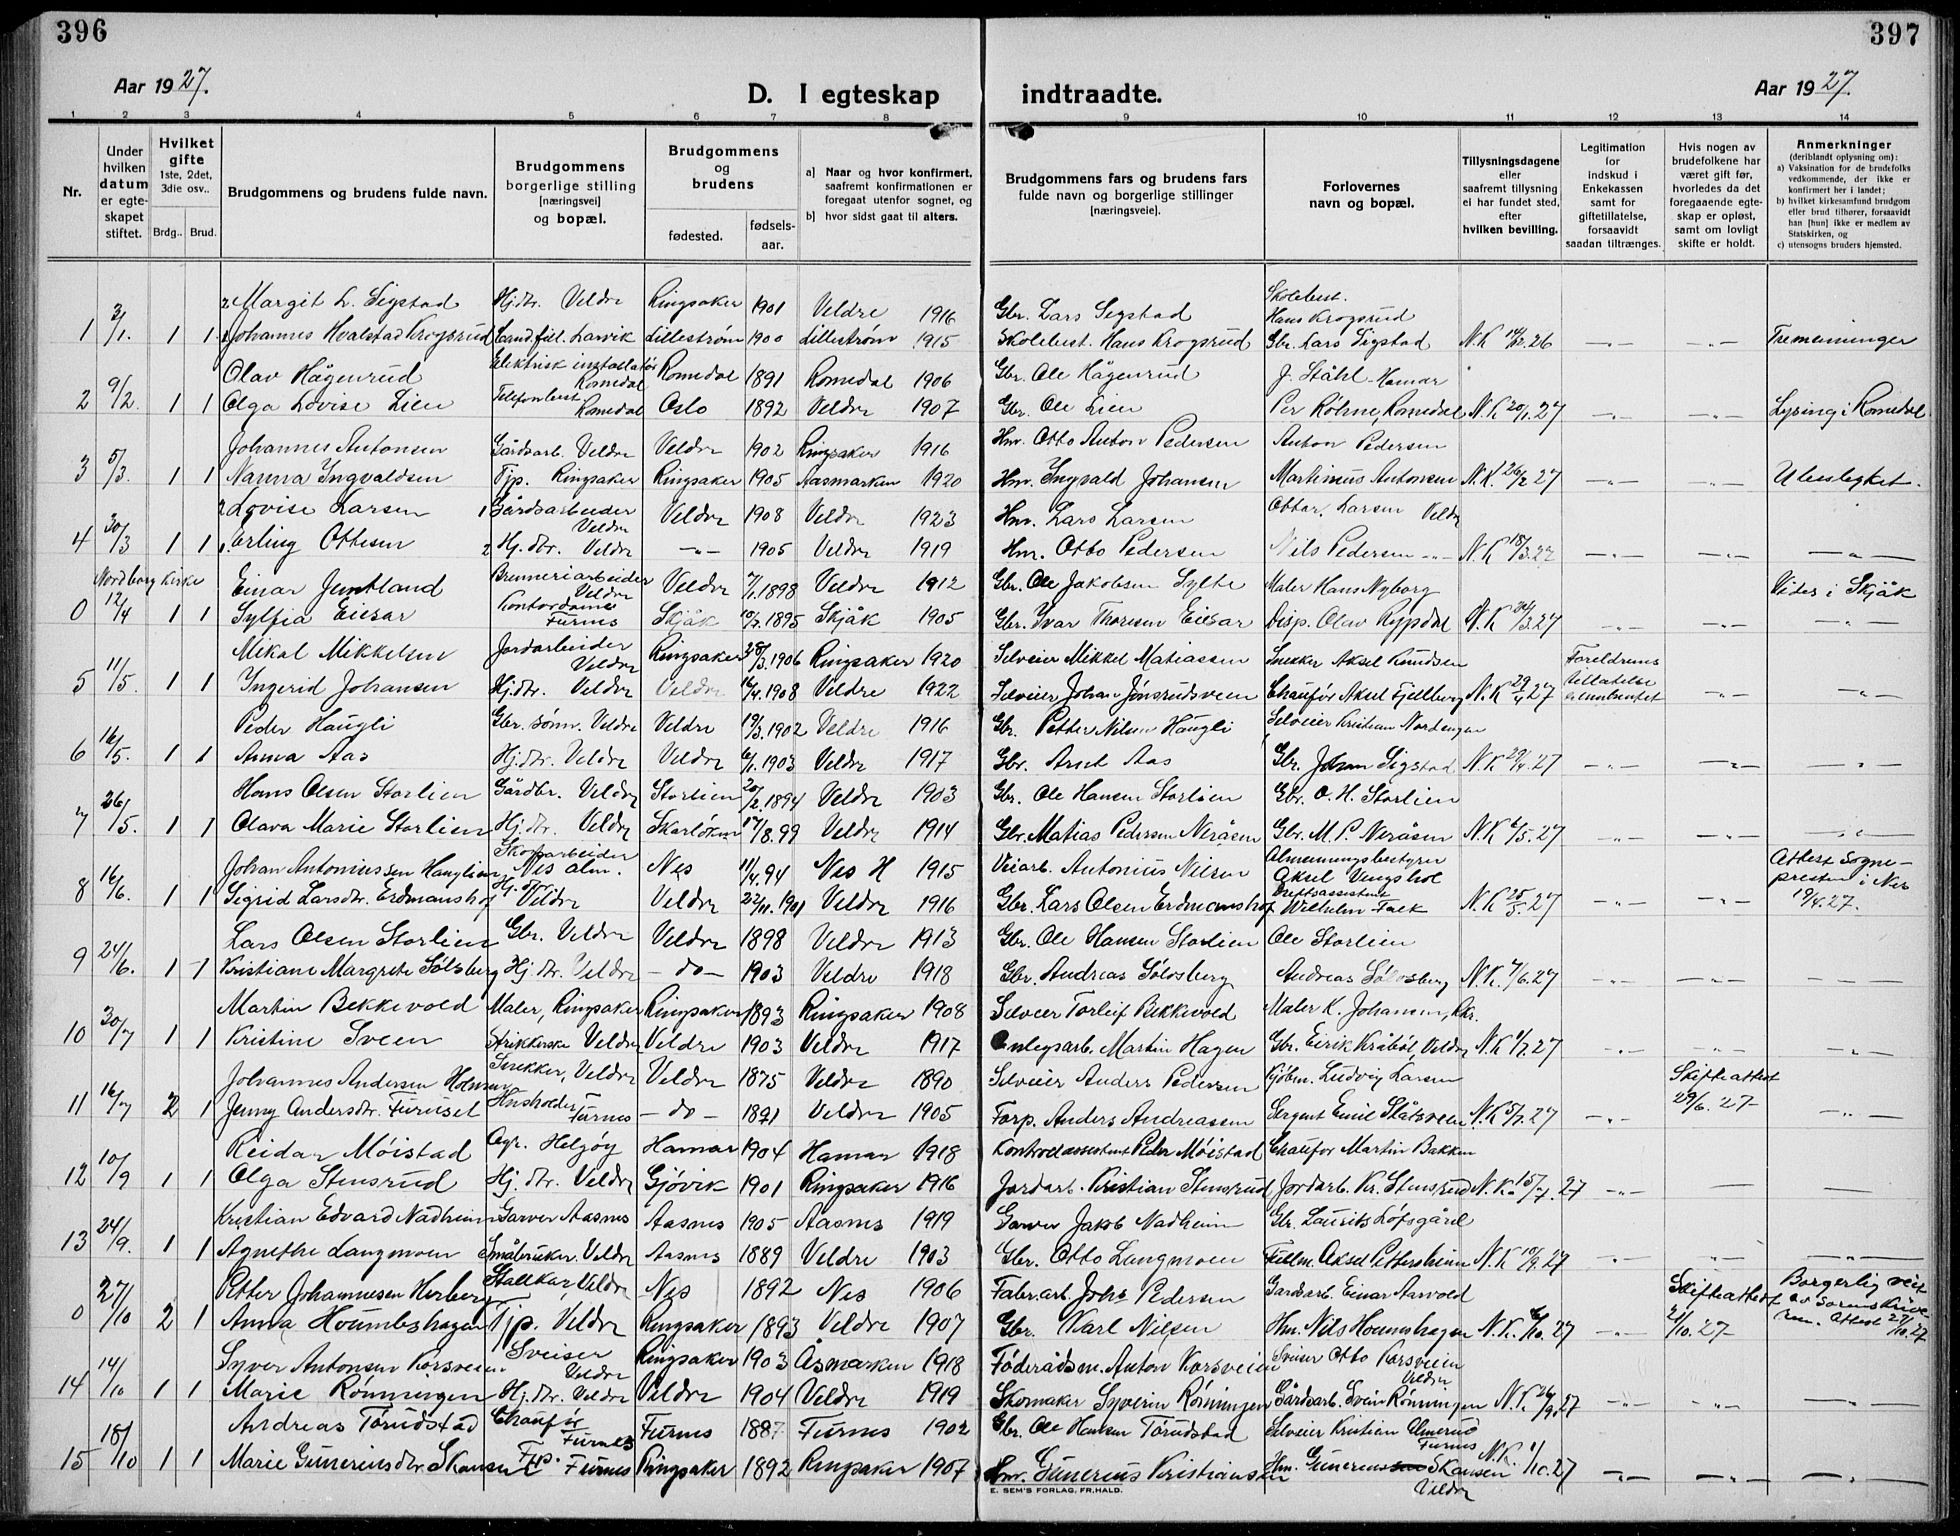 396
397
Aar 1927.
D. I egteskap indtraadte.
Aar 1927.
1 2 3 4 5 6 7 8 9 10 11 12 13 14
Nr.
Under hvilken datum er egteskapet stiftet.
Hvilket gifte 1ste, 2det, 3die osv..
Brdg.. Brud.
Brudgommens og brudens fulde navn.
Brudgommens borgerlige stilling [næringsvei] og bopæl.
Brudgommens og brudens
fødested. fødselsaar.
a) Naar og hvor konfirmert, saafremt konfirmationen er foregaat utenfor sognet, og
b) hvor sidst gaat til alters.
Brudgommens fars og brudens fars fulde navn og borgerlige stillinger [næringsveie].
Forlovernes navn og bopæl.
Tillysningsdagene eller saafremt tillysning ei har fundet sted, efter hvilken bevilling.
Legitimation for indskud i Enkekassen samt for giftetillatelse, forsaavidt saadan tiltrænges.
Hvis nogen av brudefolkene har været gift før, hvorledes da det foregaaende egteskap er opløst, samt om lovligt skifte er holdt.
Anmerkninger (deriblandt oplysning om):
a) Vaksination for de brudefolks vedkommende, der ikke er konfirmert her i landet;
b) hvilket kirkesamfund brudgom eller brud tilhører, forsaavidt han [hun] ikke er medlem av Statskirken, og
c) utensogns bruders hjemsted.
2 Margit L. Sigstad Hj.dtr. Veldre Ringsaker 1901 Veldre 1916 Gbr. Lars Sigstad Skolebest. Hans Krogsrud
1 3/1. 1 1 1 Johannes Hvalstad Krogsrud Cand. fil. Larvik Lillestrøm 1900 Lillestrøm 1915 Skolebest. Hans Krogsrud Gbr. Lars Sigstad N.K 26 -"- -"- Tremenninger
Olav Hågenrud Elektrisk installatør Romedal Romedal 1891 Romedal 1906 Gbr. Ole Hågenrud J. Ståhl Hamar
2 9/2. 1 1 Olga Lovise Lien Telefonbest. Romedal Oslo 1892 Veldre 1907 Gbr. Ole Lien Per Røhne, Romedal N.K 20/1.27 -"- -"- Lysing i Romedal
Johannes Antonsen Gårdsarb. Veldre Veldre 1902 Ringsaker 1916 Hmr. Otto Anton Pedersen Anton Pedersen
3 5/3. 1 1 Nanna Ingvaldsen Tjp. Ringsaker Ringsaker 1905 Aasmarken 1920 Hmr. Ingvald Johansen Martinus Antonsen N.K. 26/2 27 -"- -"- Ubeslegtet.
2 Lovise Larsen 1 Gårdsarbeider Veldre Veldre 1908 Veldre 1923 Hmr. Lars Larsen Ottar Larsen Veldre
4 30/3 1 1 1. Erling Ottesen 2 Hj.dtr. Veldre -"- 1905 Veldre 1919 Hm. Otto Pedersen Nils Pedersen -"- N.K 18/3.27 -"- -"- -"-
Nordborg Kirke Einar Jemtland Brenneriarbeider Veldre Veldre 7/1.1898 Veldre 1912 Gbr. Ole Jakobsen Sylte Maler Hans Nyborg Viet i Skjåk
0 12/4 1 1 Sylfia Eiesar Kontordame Furnes Skjåk 1895 Skjåk 1905 Gbr. Ivar Thoresen Eiesar Disp. Olav Rypdal N.K 27 -"- -"-
Mikal Mikkelsen Jordarbeider Veldre Ringsaker 28/3.1906 Ringsaker 1920 Selveier Mikkel Matiassen Snekker Aksel Knudsen Foreldrenes
5 11/5. 1 1 Ingerid Johansen Hj.dtr. Veldre Veldre 16/4.1908 Veldre 1922 Selveier Johan Jønsrudsveen Chaufør Aksel Fjellberg N.K 29/4 27 tillatelse -"- -"-
Peder Haugli Gbr. sønn. Veldre Veldre 19/3.1902 Veldre 1916 Gbr. Petter Nilsen Haugli Selveier Kristian Nordengen
6 16/5. 1 1 Anna Aas Hj.dtr. Veldre Veldre 6/1.1903 Veldre 1917 Gbr. Arnt Aas Gbr. Johan Sigstad N.K 29/4.27 -"- -"- -"-
Hans Olsen Storlien Gårdbr. Veldre Storlien 20/2.1894 Veldre 1903 Gbr. Ole Hansen Storlien Gbr. O. H. Storlien
7 26/5. 1 1 Olava Marie Storlien Hj.dtr. Veldre Skarløken 17/8.99 Veldre 1914 Gbr. Matias Pedersen Neråsen Gbr. M. P. Neråsen N.K 6/5.27 -"- -"- -"-
Johan Antoniussen Hanglien Skogsarbeider Nes alm. Nes 11/4.94 Nes H 1915 Veiarb. Antonius Nilsen Almenningsbestyrer Aksel Vengshol Attest sogne-
8 16/6. 1 1 Sigrid Larsdtr. Erdmanshof Hj.dtr. Veldre Veldre 22/11.1901 Veldre 1916 Gbr. Lars Olsen Erdmanshof Driftsassistent Wilhelm Falk N.K 25/5.27 -"- -"- presten i Nes 19/4.27.
Lars Olsen Storlien Gbr. Veldre Veldre 1898 Veldre 1913 Gbr. Ole Hansen Storlien Ole Storlien
9 24/6. 1 1 Kristiane Margrete Sølsberg Hj.dtr. Veldre - do - 1903 Veldre 1918 Gbr. Andreas Sølvsberg Andreas Sølvsberg N.K. 7/6.27 -"- -"- -"-
Martin Bekkevold Maler, Ringsaker Ringsaker 1893 Ringsaker 1908 Selveier Torleif Bekkevold Maler K. Johansen, Rkr.
10 30/7 1 1 Kristine Sveen Strikkerske Veldre Veldre 1903 Veldre 1917 Anlegsarb. Martin Hagen Gbr. Eirik Kråbøl, Veldre N.K 1/7.27 -"- -"- -"-
Johannes Andersen Holmen Snekker, Veldre Veldre 1875 Veldre 1890 Selveier Anders Pedersen Kjøbm. Ludvig Larsen Skifteattest
11 16/7 2 1 Jenny Andersdtr. Furuset Husholder Furnes - do - 1891 Veldre 1905 Forp. Anders Andreassen Sergent Emil Slåtsveen N.K 5/7.27 -"- 29/6.27- -"-
Reidar Möistad Agr. Helgøy Hamar 1904 Hamar 1918 Kontrolassistent Peder Möistad Chaufør Martin Bakken
12 10/9 1 1 Olga Stensrud Hj.dtr. Veldre Gjövik 1901 Ringsaker 1916 Jordarb. Kristian Stensrud Jordarb. Kr. Stensrud N.K. 15/7. 27 -"-
Kristian Edvard Nadheim Garver Aasnes Aasnes 1905 Aasnes 1919 Garver Jakob Nadheim Gbr. Laurits Løfsgård
13 24/9. 1 1 Agnethe Langmoen Småbruker. Veldre Aasnes 1889 Veldre 1903 Gbr. Otto Langmoen Fullm. Aksel Pettersheim N.K 10/9.27 -"- -"- -"-
Petter Johannesen Herberg Stallkar, Veldre Nes 1892 Nes 1906 Fabr.arb. Johs Pedersen Gårdsarb. Einar Aarvold Skifteattest Borgerlig viet av Sorenskrive-
0 27/10 2 1 Anna Houmbshagen Tjp. Veldre Ringsaker 1893 Veldre 1907 Gbr. Karl Nilsen Hm. Nils Houmshagen N.K. 6/10.27 -"- 2/10.27- ren. Attest 27/10.27
Syver Antonsen Korsveien Sveiser Veldre Ringsaker 1903 Åsmarken 1918 Föderådsm. Anton Korsveien Sveiser Otto Korsveien Veldre
14 14/10 1 1 Marie Rønningen Hj.dtr. Veldre Veldre 1904 Veldre 1919 Skomaker Syverin Rønningen Gårdsarb. Svein Rønningen N.K. 26/9.27 -"- -"-
Andreas Torudstad Chaufør Furnes Furnes 1887 Furnes 1902 Gbr. Ole Hansen Torudstad Selveier Kristian Furnes
15 18/10 1 1 Marie Gunereusdtr Skansen Tjp. Furnes Ringsaker 1892 Ringsaker 1907 Hmr. Gunerius Kristiansen Hm. Gunerius Skansen Veldre N.K. 1/10.27 -"- -"- -"-
E. SEM'S FORLAG, FR.HALD.